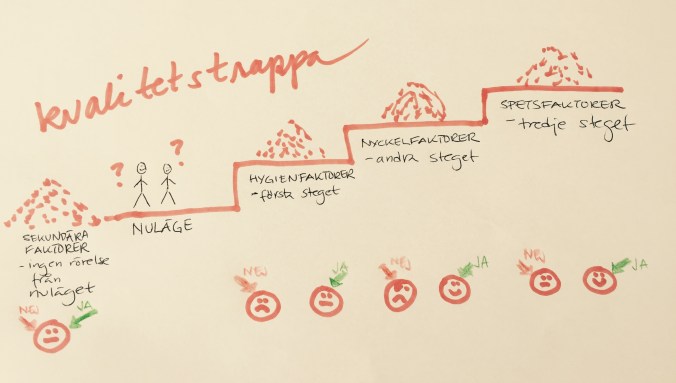 kvalitetstrappa
SPETSFAKTORER
- tredje steget
NYCKELFAKTORER
- andra steget
? ?
HYGIENFAKTORER
- första steget
NULÄGE
SEKUNDÄRA
FAKTORER
- ingen rörelse
från
nuläget
NEJ JA
NEJ JA
NEJ JA
NEJ JA